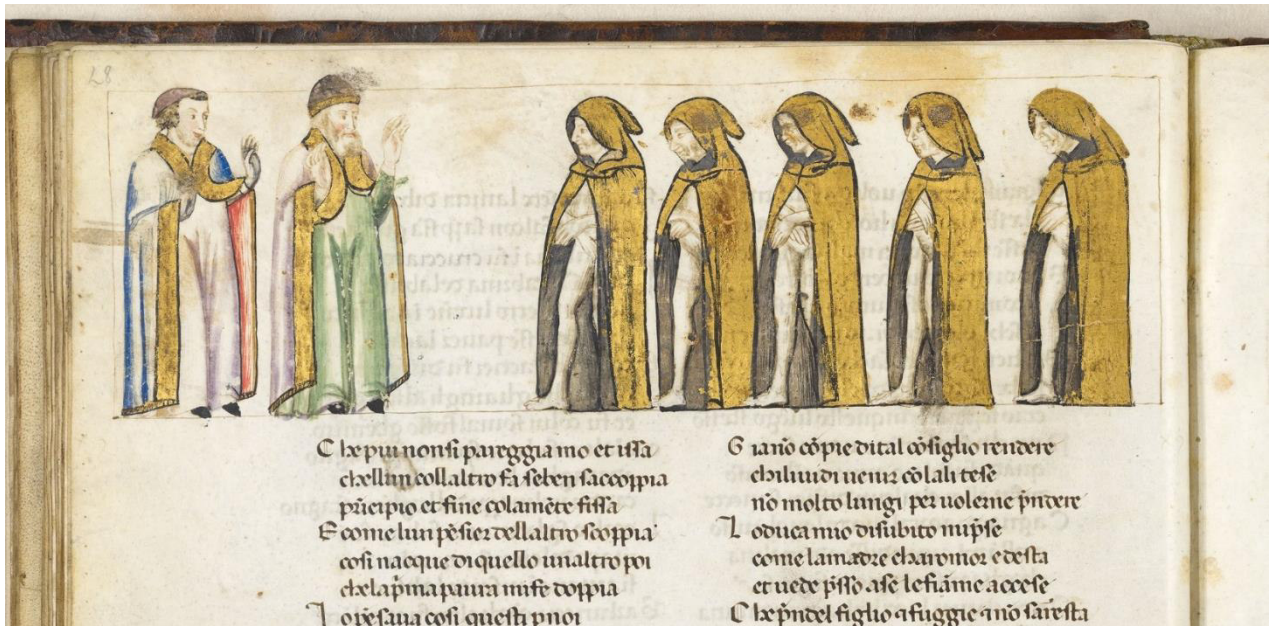 Che piu non si pareggia mo et issa
che llun coll altro fa se ben saccoppia
prīcipio et fine cola mēte fissa
E come lun pēsier dell altro scoppia
cosi nacque di quello un altro poi
che la pͥma paura mi fe doppia
I o pēsaua cosi questi p noi
G ia nō cōpie di tal cōsiglio rendere
ch i li uidi uenir cō lali tese
nō molto lungi per uolerne pͥndere
L o duca mio di subito mi pͥse
come la madre cha romor e desta
et uede pͥsso a se le fiāme accese
C he pͥnde il figlio